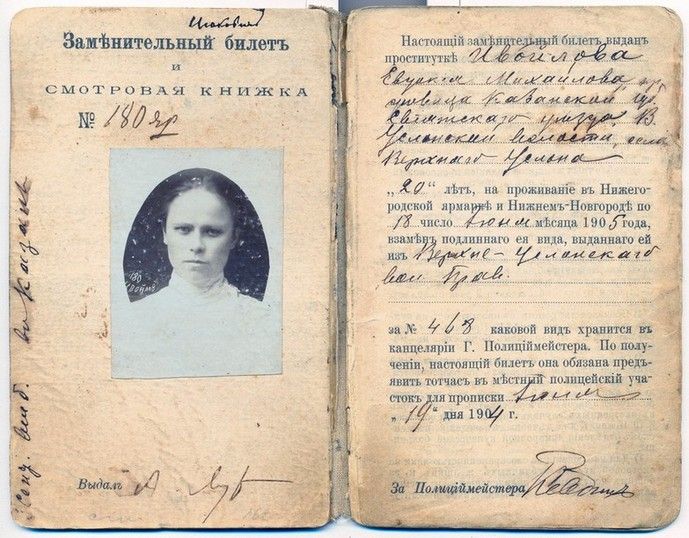 Замѣнительный билетъ
и
СМОТРОВАЯ КНИЖКА
№ 180 яр
180
Выдалъ
Настоящій замѣнительный билетъ выданъ
проституткѣ Ивойлова
Евдокія Михайлова, кре
Казанской гу.
уѣзда, В.
Услонской волости, села
Верхняго Услона
„20“ лѣтъ, на проживаніе въ Нижего-
родской ярмаркѣ и Нижнемъ-Новгородѣ по
18 число Іюня мѣсяца 1905 года,
взамѣнъ подлиннаго ея вида, выданнаго ей
изъ Верхне-Услонскаго
вол. Прав.
за № 468 каковой видъ хранится въ
канцеляріи Г. Полиціймейстера. По полу-
ченіи, настоящій билетъ она обязана предъ-
явить тотчасъ въ мѣстный полицейскій уча-
стокъ для прописки Іюня
„19“ дня 1904 г.
За Полиціймейстера